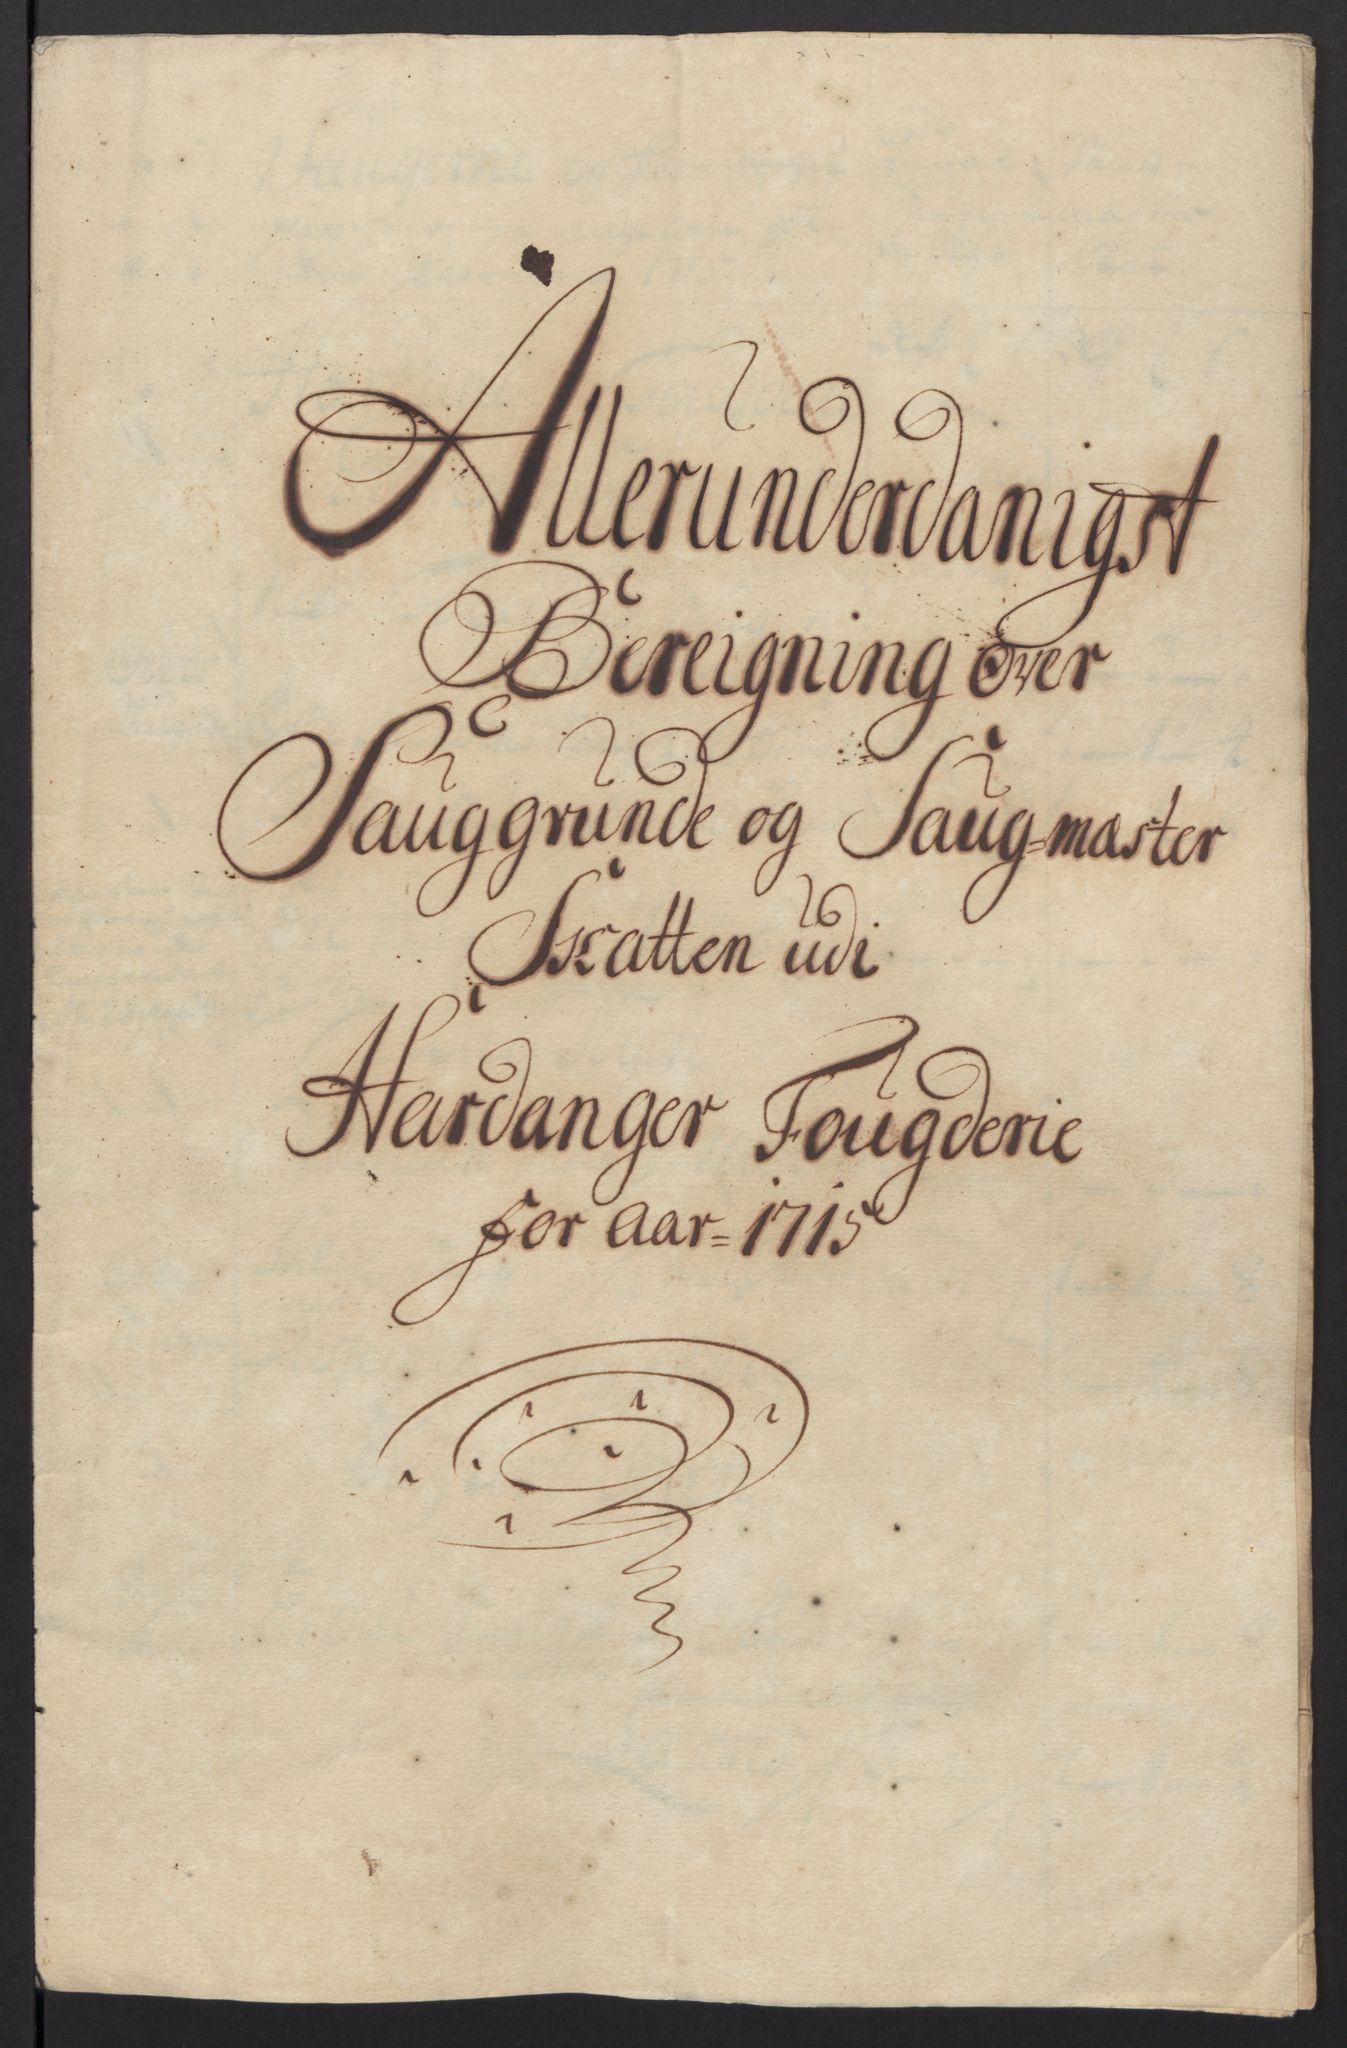 Allerunderdanigst
Bereigning over
Sauggrunde og Saug=mæster
Skatten udi
Hardanger Fougderie
for Aar= 1715